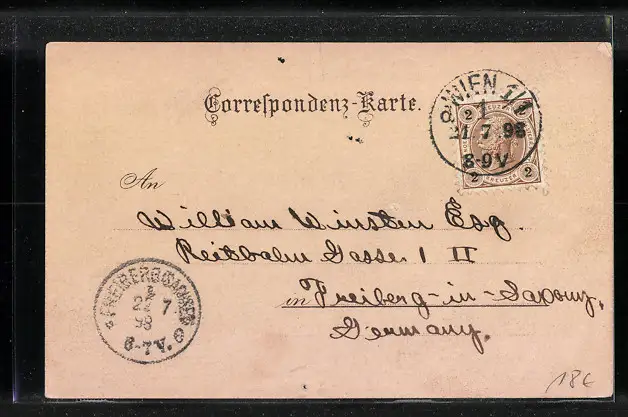 Correspondenz-Karte.
WIEN 1/1
1
21 7 98
8-9V
2 2
2 KREUZER 2
An
William Winsten Esq.
Reitbahn Gasse 1 II
in Freiberg-in-Saxony,
Germany.
FREIBERG (SACHSEN)
22 7
98
6-7V.
18€